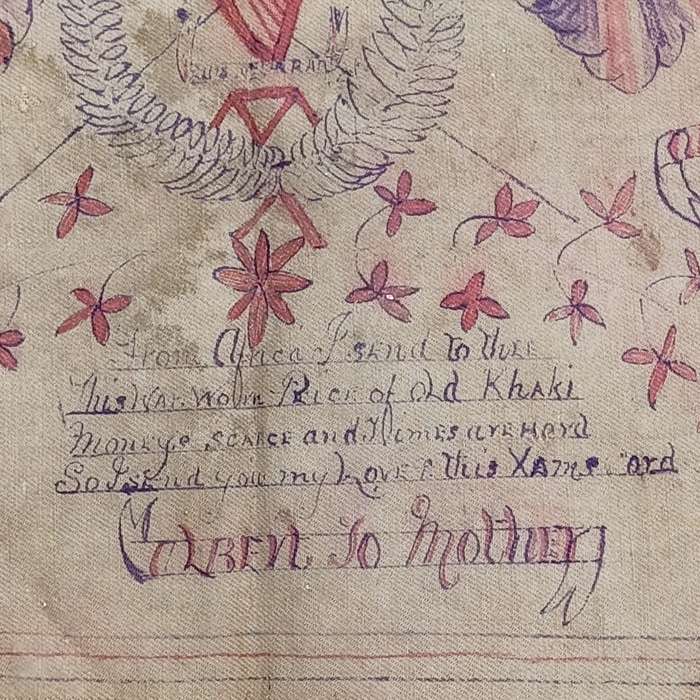 From Africa I send to thee
This War Worn Peice of Old Khaki
Money's SCARCE and Times are Hard
So I send you my Love & this Xams Card
To Mother